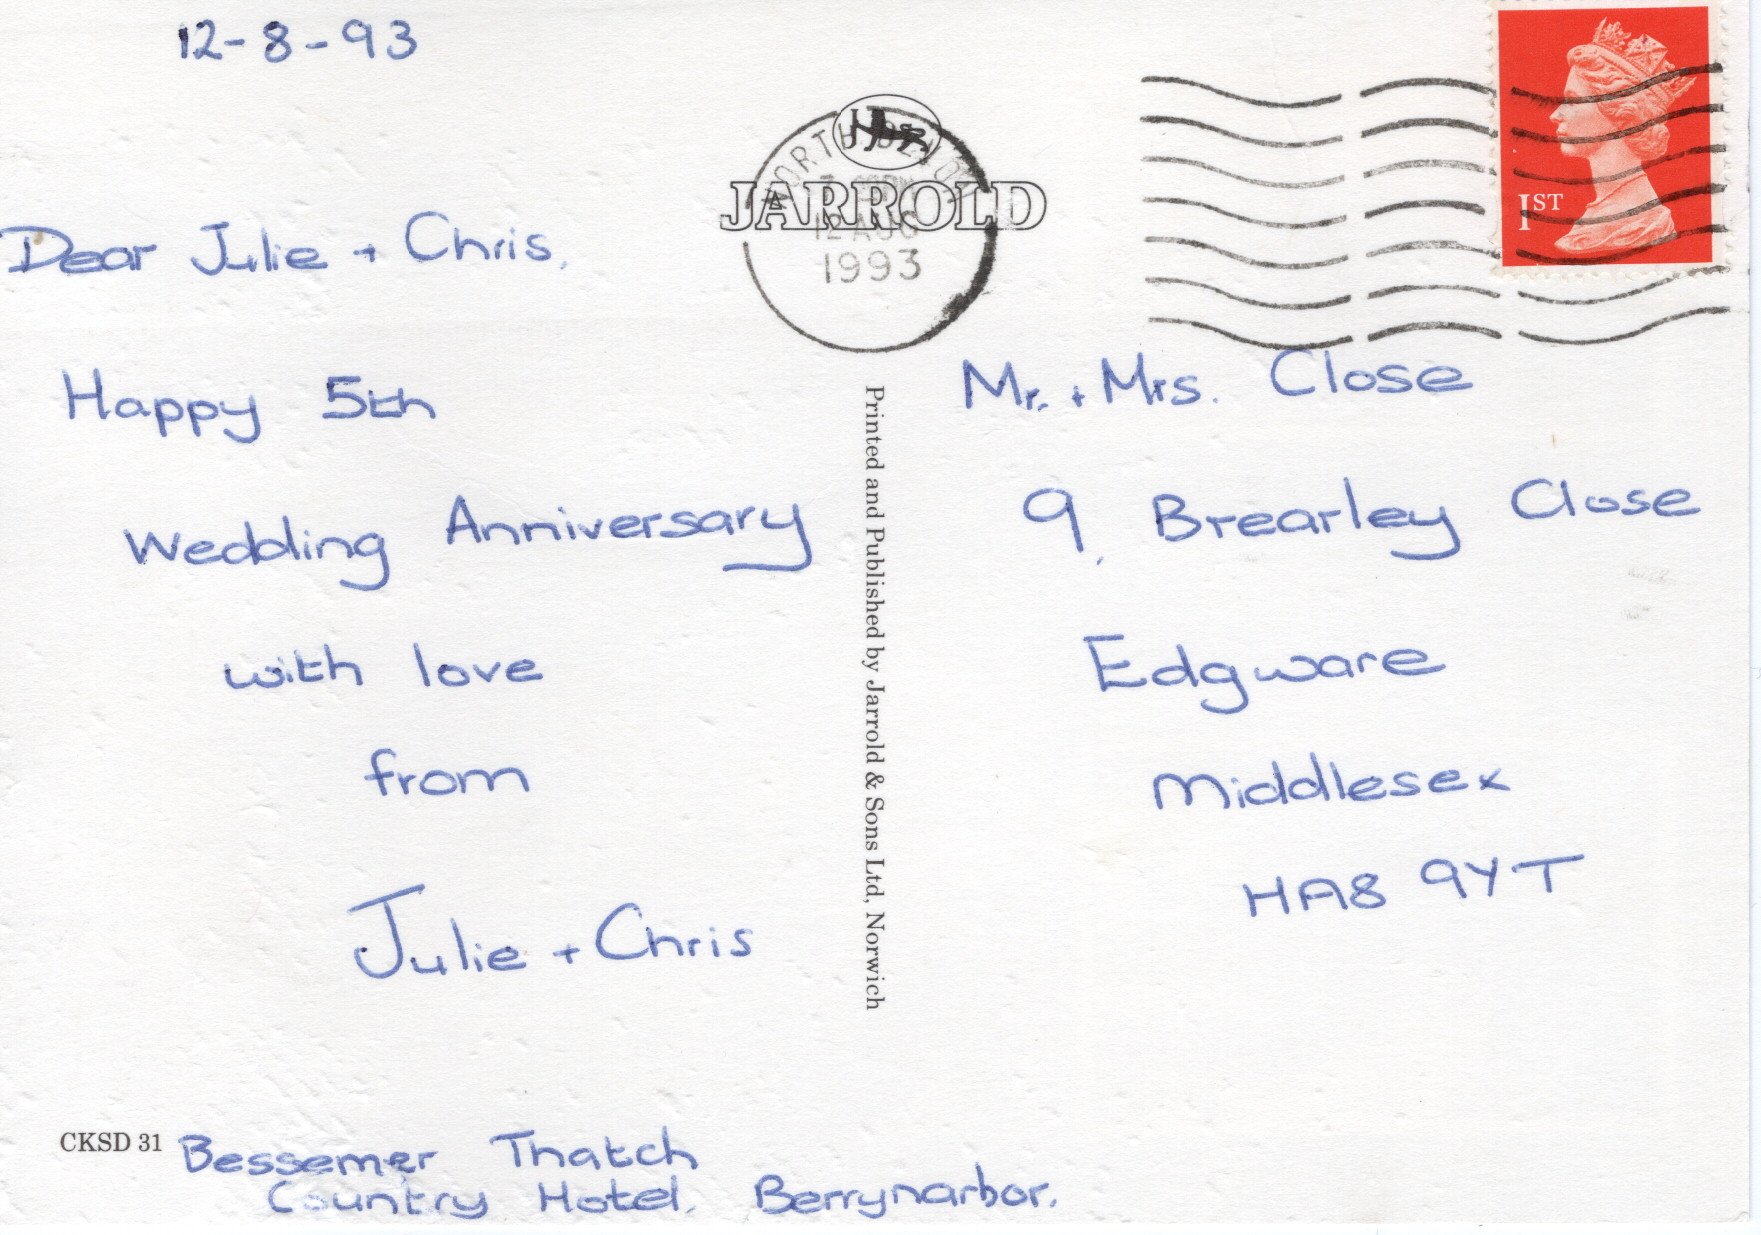 12-8-93
JARROLD
NORTH DEVON
12 AUG
1993
1ST
Dear Julie + Chris.
Happy 5th
Wedding Anniversary
with love
from
Julie + Chris
CKSD 31
Bessemer Thatch
Country Hotel. Berrynarbor.
Printed and Published by Jarrold & Sons Ltd, Norwich
Mr. + Mrs. Close
9, Brearley Close
Edgware
Middlesex
HA8 9YT